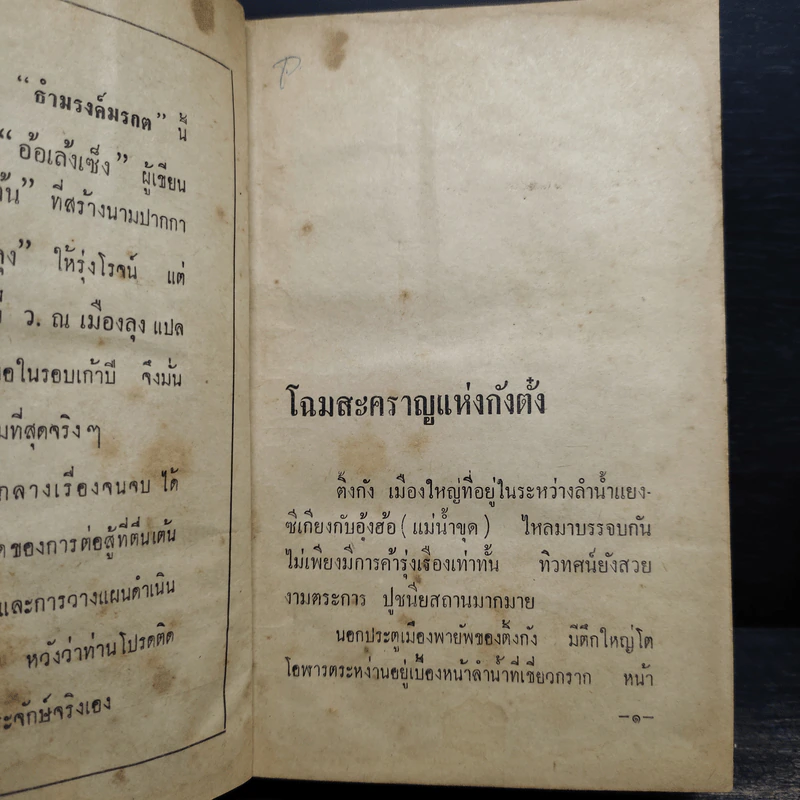 “ธำมรงค์มรกต” นี้
“อ้อเล้งเซ็ง” ผู้เขียน
ที่สร้างนามปากกา
ให้รุ่งโรจน์ แต่
ว. ณ เมืองลุง แปล
ในรอบเก้าปี จึงมั่น
ที่สุดจริง ๆ
กลางเรื่องจนจบ ได้
ของการต่อสู้ที่ตื่นเต้น
และการวางแผนดำเนิน
หวังว่าท่านโปรดติด
จริงเอง
โฉมสะคราญแห่งกังตั๋ง
ติ้งกัง เมืองใหญ่ที่อยู่ในระหว่างลำน้ำแยง-
ซีเกียงกับอุ้งฮ้อ ( แม่น้ำขุด ) ไหลมาบรรจบกัน
ไม่เพียงมีการค้ารุ่งเรืองเท่าทั้น ทิวทศน์ยังสวย
งามตระการ ปูชนียสถานมากมาย
นอกประตูเมืองพายัพของติ้งกัง มีตึกใหญ่โต
โอฬารตระหง่านอยู่เบื้องหน้าลำน้ำที่เชี่ยวกราก หน้า
—๑—